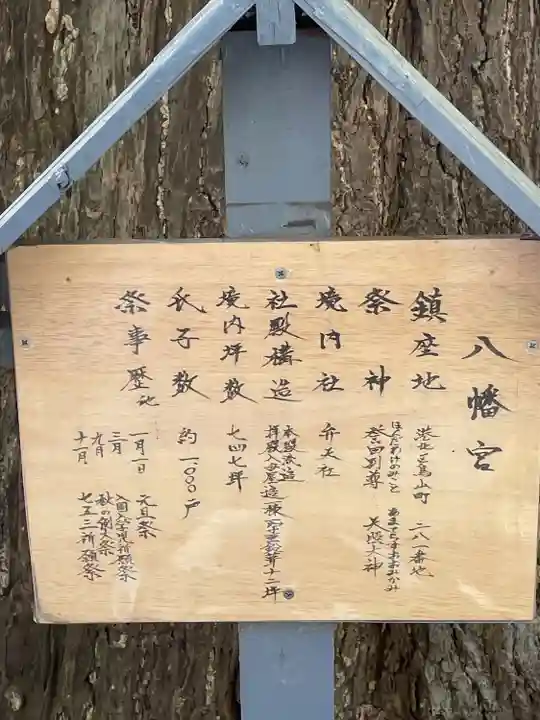 八幡宮
鎮座地 港北区鳥山町 二八一番地
祭神 誉田別尊 天照大神
ほんだわけのみこと あまてらすおおみかみ
境内社 弁天社
社殿構造 本殿流造
拝殿入母屋造一棟 十二坪
境内坪数 七四七坪
氏子数 約一、〇〇〇戸
祭事歴
一月一日 元旦祭
三月 入園入学児祈願祭
九月 秋の例大祭
十一月 七五三祈願祭